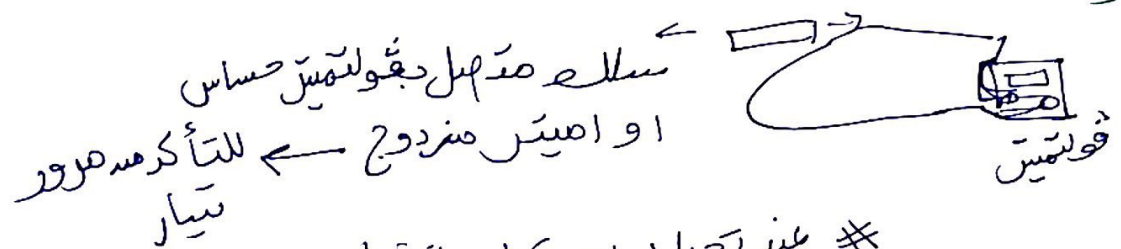 سلك متصل بڤولتميتر حساس
او اميتر مزدوج ← للتأكد من مرور
تيار
ڤولتميتر
# عند